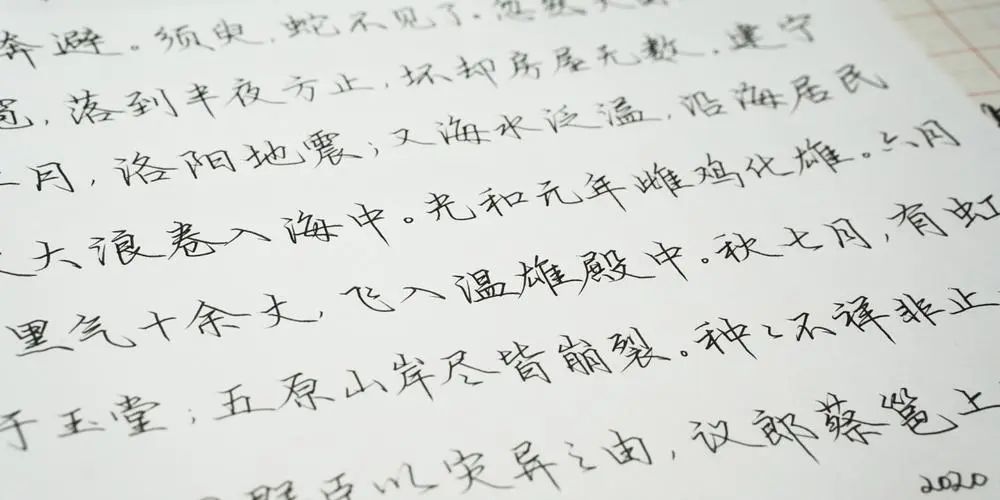 奔避。须臾,蛇不见了。忽然大
雹,落到半夜方止,坏却房屋无数。建宁
二月,洛阳地震;又海水泛溢,沿海居民
大浪卷入海中。光和元年雌鸡化雄。六月
黑气十余丈,飞入温雄殿中。秋七月,有虹
于玉堂;五原山岸尽皆崩裂。种々不祥非止
群臣以灾异之由,议郎蔡邕上
2020